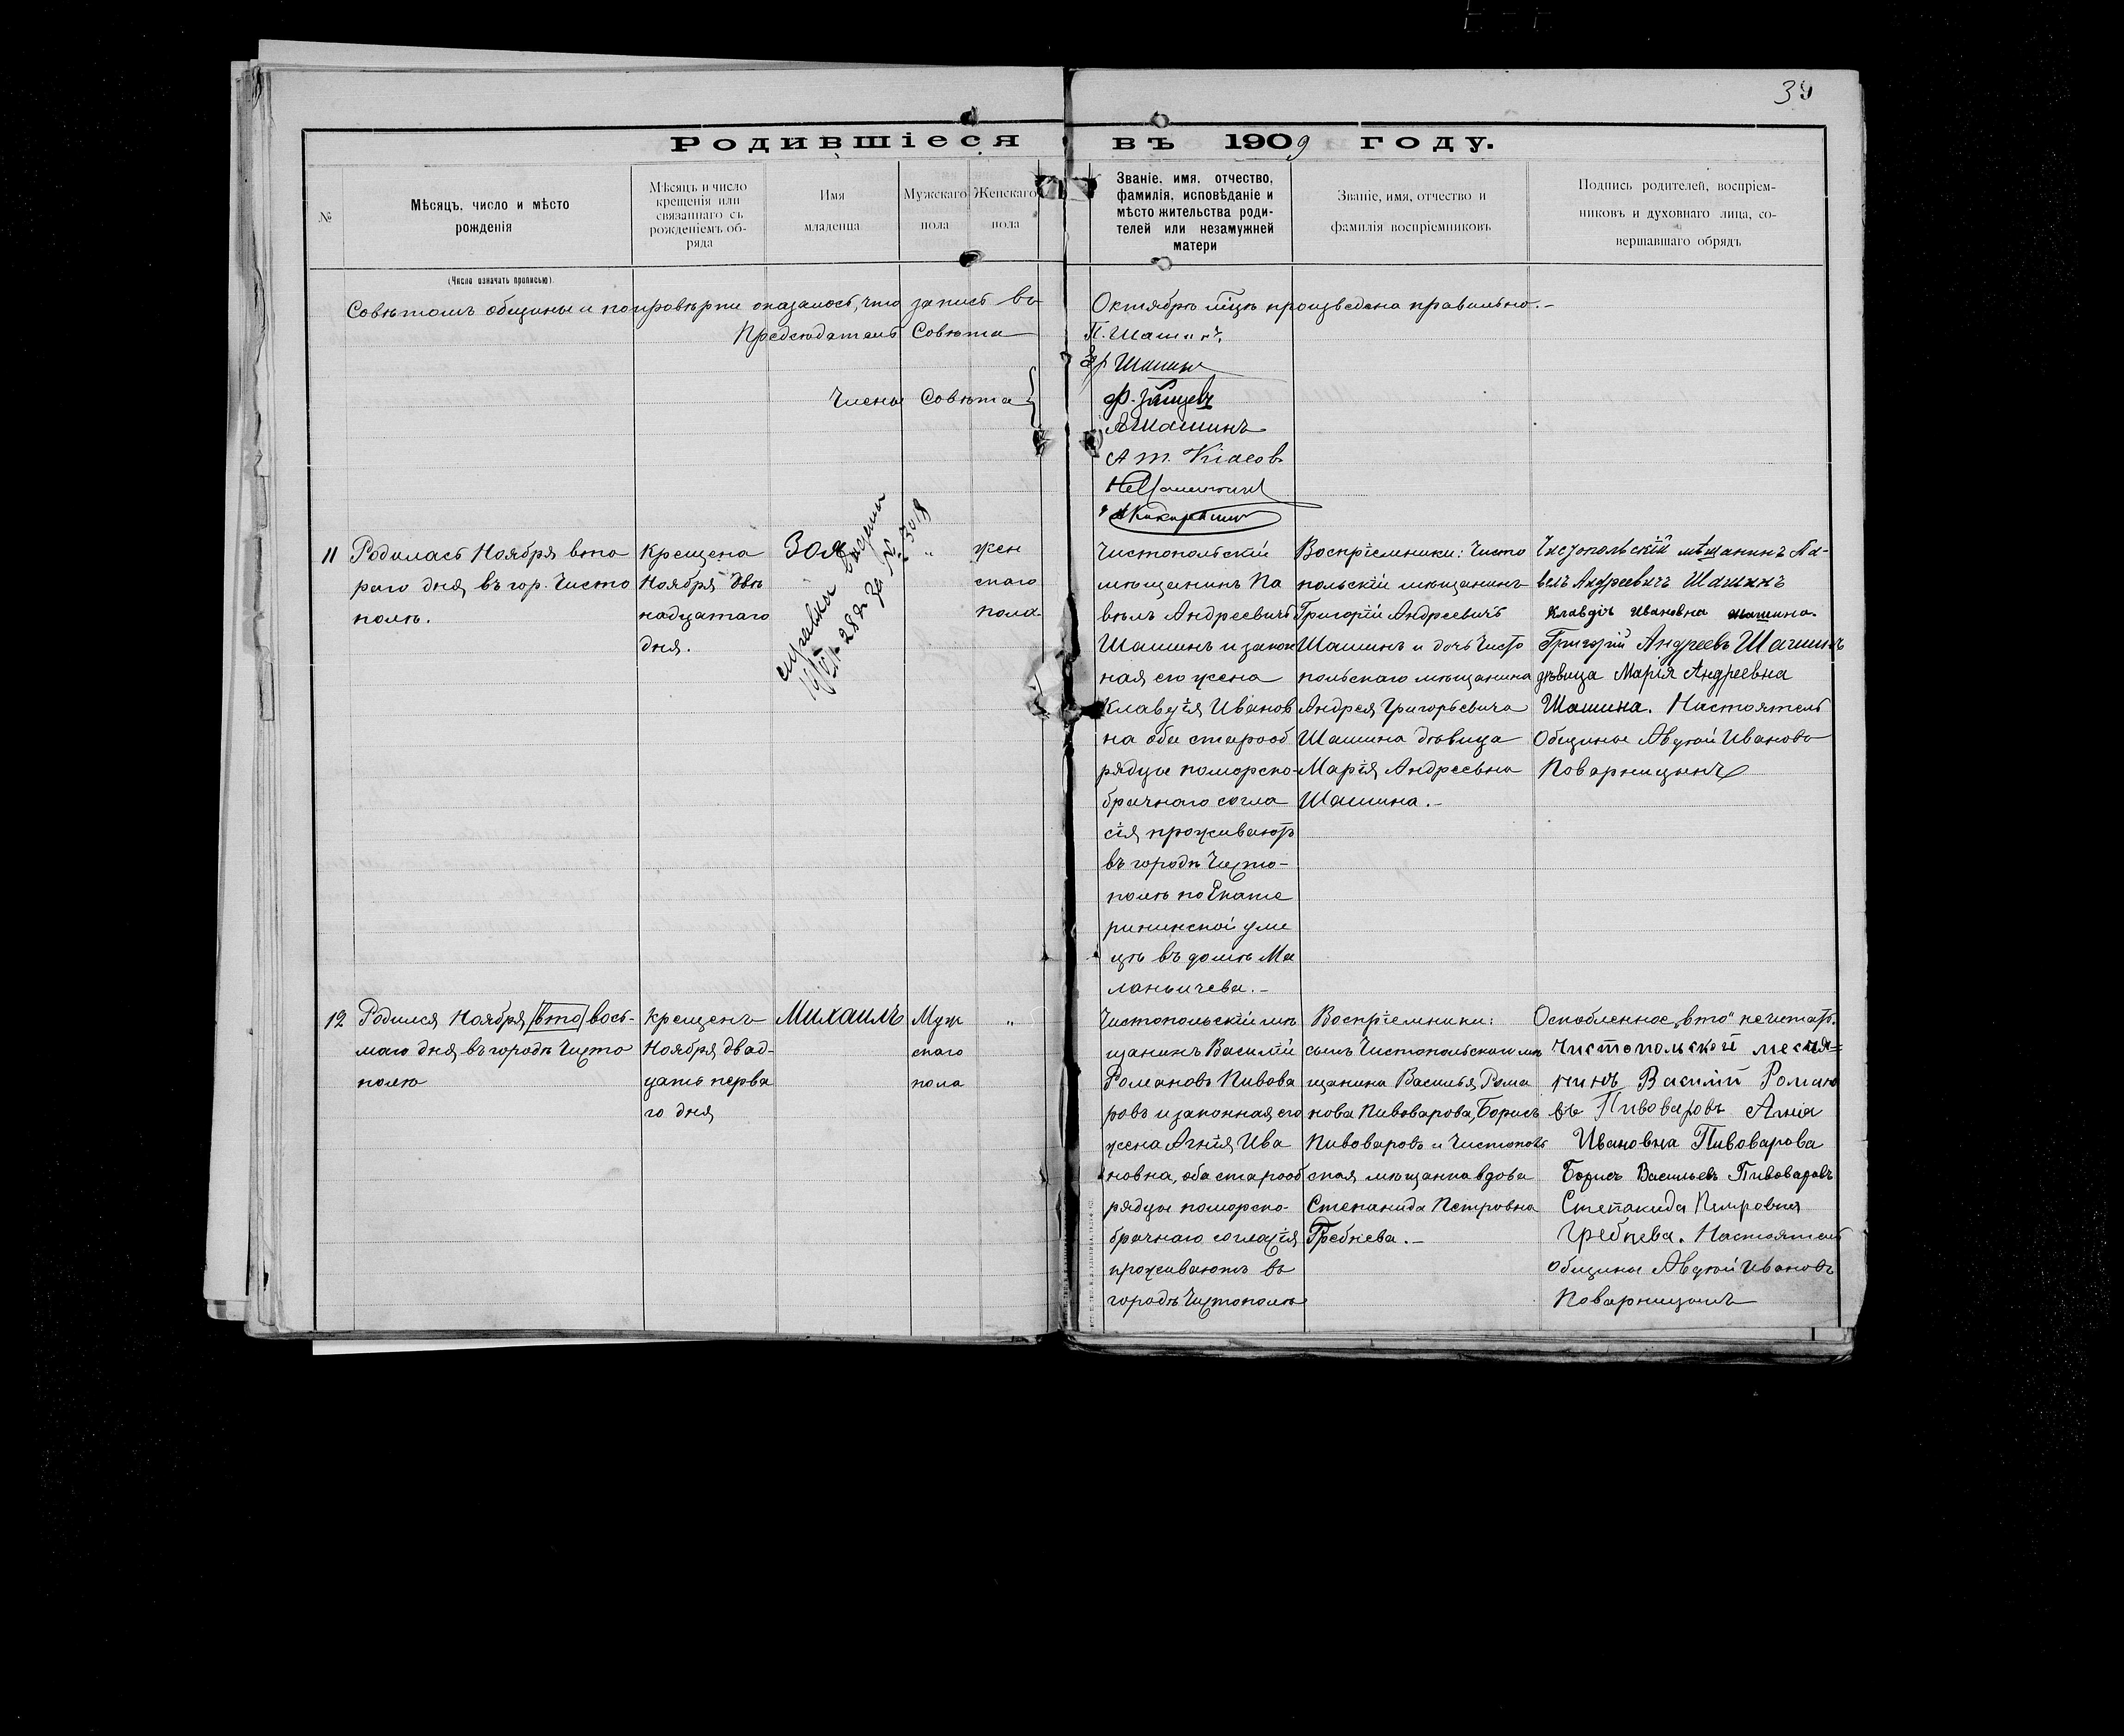 39
Родившіеся въ 1909 году.
№
Мѣсяцъ, число и мѣсто
рожденія
Мѣсяцъ и число
крещенія или
связаннаго съ
рожденіемъ об-
ряда
Имя
младенца
Мужскаго
пола
Женскаго
пола
Званіе, имя, отчество,
фамилія, исповѣданіе и
мѣсто жительства роди-
телей или незамужней
матери
Званіе, имя, отчество и
фамилія воспріемниковъ
Подпись родителей, воспріем-
никовъ и духовнаго лица, со-
вершавшаго обрядъ
(Число означать прописью)
Совѣтомъ общины и по провѣрки оказалось, что запись въ Октябрѣ м͞цѣ произведена правильно.-
Предсѣдатель Совѣта П. Шашинъ
Гр Шашинъ
Члены Совѣта
АШашинъ
11
Родилась Ноября вто
раго дня, въ гор. Чисто
полѣ.
Крещена
Ноября двѣ
надцатаго
дня.
Зоя
справка выдана
за №
"
жен
скаго
пола.
Чистопольскій
мѣщанинъ Па
вѣлъ Андреевичъ
Шашинъ и закон
ная его жена
Клавдія Иванов
на оба старооб
рядцы поморско-
брачнаго согла
сія проживаютъ
въ городѣ Чисто-
полѣ по Екате
рининской ули
цѣ въ домѣ Ма
ланьичева.-
Воспріемники: Чисто
польскій мѣщанинъ
Григорій Андреевичъ
Шашинъ и дочь Чисто
польскаго мѣщанина
Андрея Григорьевича
Шашина дѣвица
Марія Андреевна
Шашина.-
Чистопольскій мѣщанинъ Па-
велъ Андреевичъ Шашинъ
Клавдія Ивановна Шашина.
Григорій Андреевъ Шашинъ
дѣвица Марія Андреевна
Шашина. Настоятель
Общины Авдѣй Ивановъ
Поварницынъ
12
Родился Ноября /вто/ вось-
маго дня, въ городѣ Чисто
полѣ
Крещенъ
Ноября двад-
цать перва
го дня
Михаилъ
Муж
скаго
пола
"
Чистопольскій мѣ
щанинъ Василій
Романовъ Пивова
ровъ и законная его
жена Агнія Ива
новна, оба старооб
рядцы поморско-
брачнаго согласія
проживаютъ въ
городѣ Чистополѣ
Воспріемники:
сынъ Чистопольскаго мѣ
щанина Василья Рома
нова Пивоварова, Борисъ
Пивоваровъ и Чистополь
ская мѣщанка вдова
Степанида Петровна
Гребнева.-
Оскобленное „вто" не читать.
Чистопольскоіе месчя=
нинъ Василій Романо
въ Пивоваровъ Агнія
Ивановна Пивоварова
Борисъ Васильевъ Пивоваровъ
Степанида Петровна
Гребнева. Настоятель
Общины Авдѣй Ивановъ
Поварницынъ